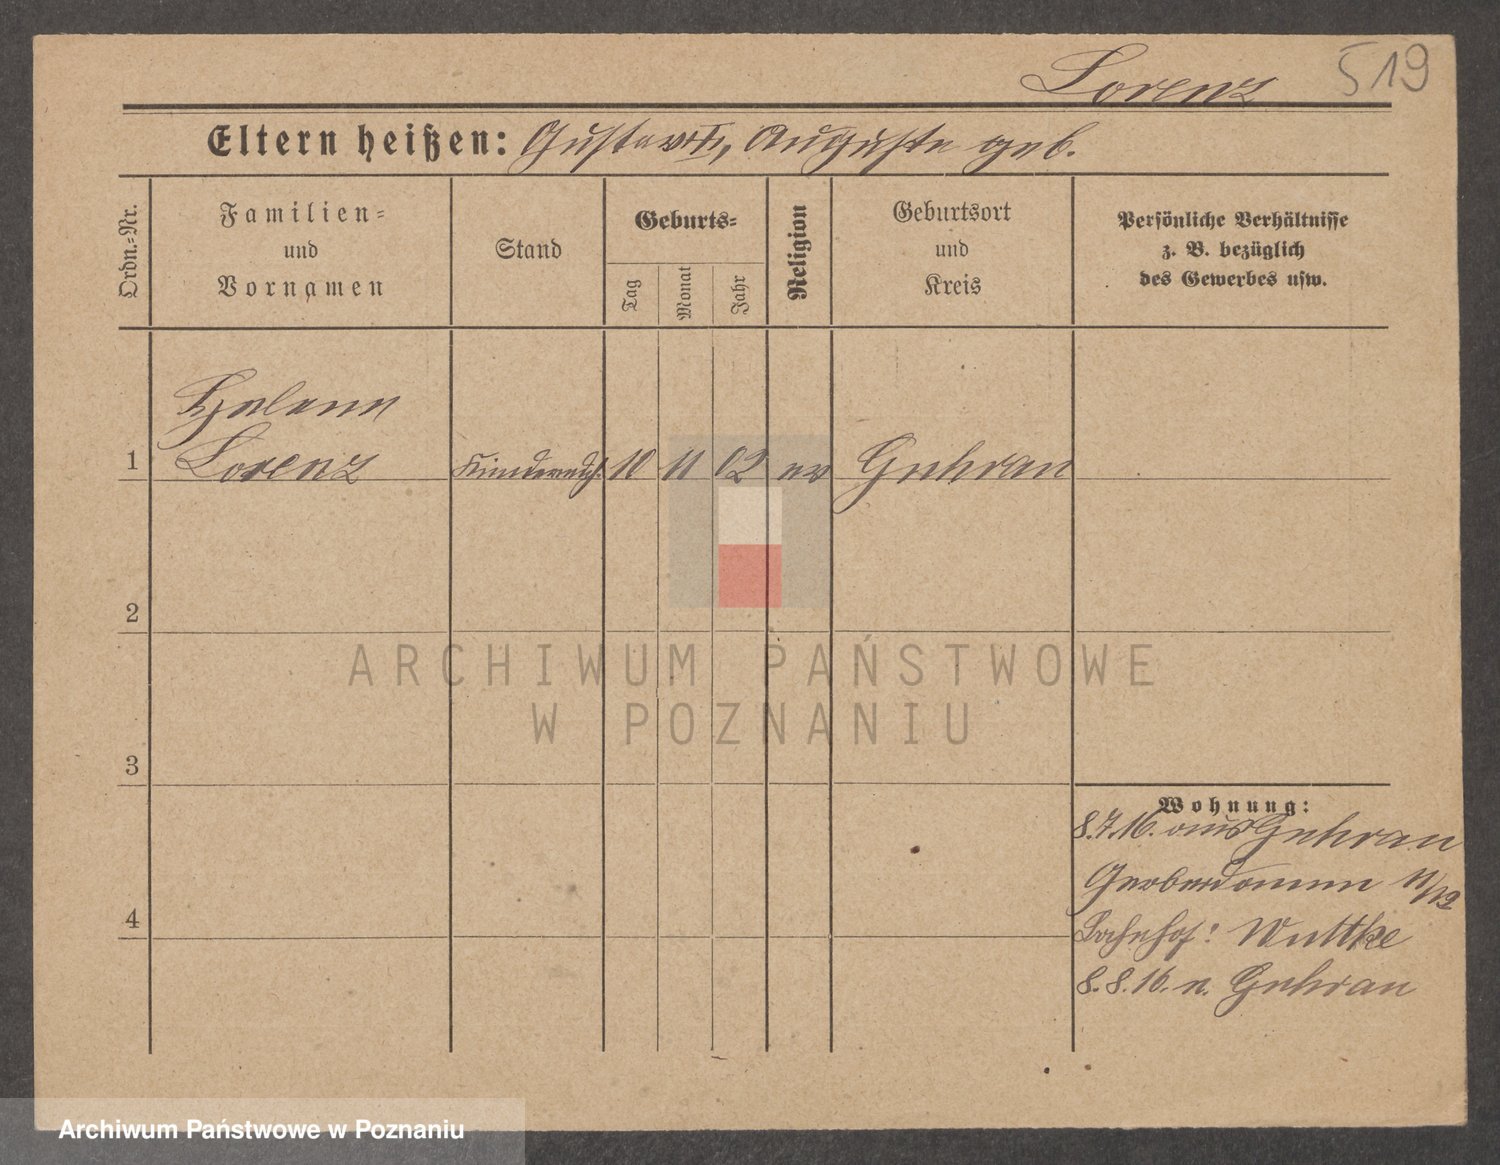 Lorenz 519
Eltern heißen: Gustav I, Auguste geb.
Ordn.-Nr.
Familien-
und
Vornamen
Stand
Geburts-
Tag
Monat
Jahr
Religion
Geburtsort
und
Kreis
Persönliche Verhältnisse
z. B. bezüglich
des Gewerbes usw.
Helene
1 Lorenz Kindermdch. 10 11 02 ev Guhrau
2
3
4
Wohnung:
8.7.16. aus Guhrau
Gerberdamm 11/12
Bahnhof: Wuttke
8.8.16. n. Guhrau
ARCHIWUM PAŃSTWOWE
W POZNANIU
Archiwum Państwowe w Poznaniu